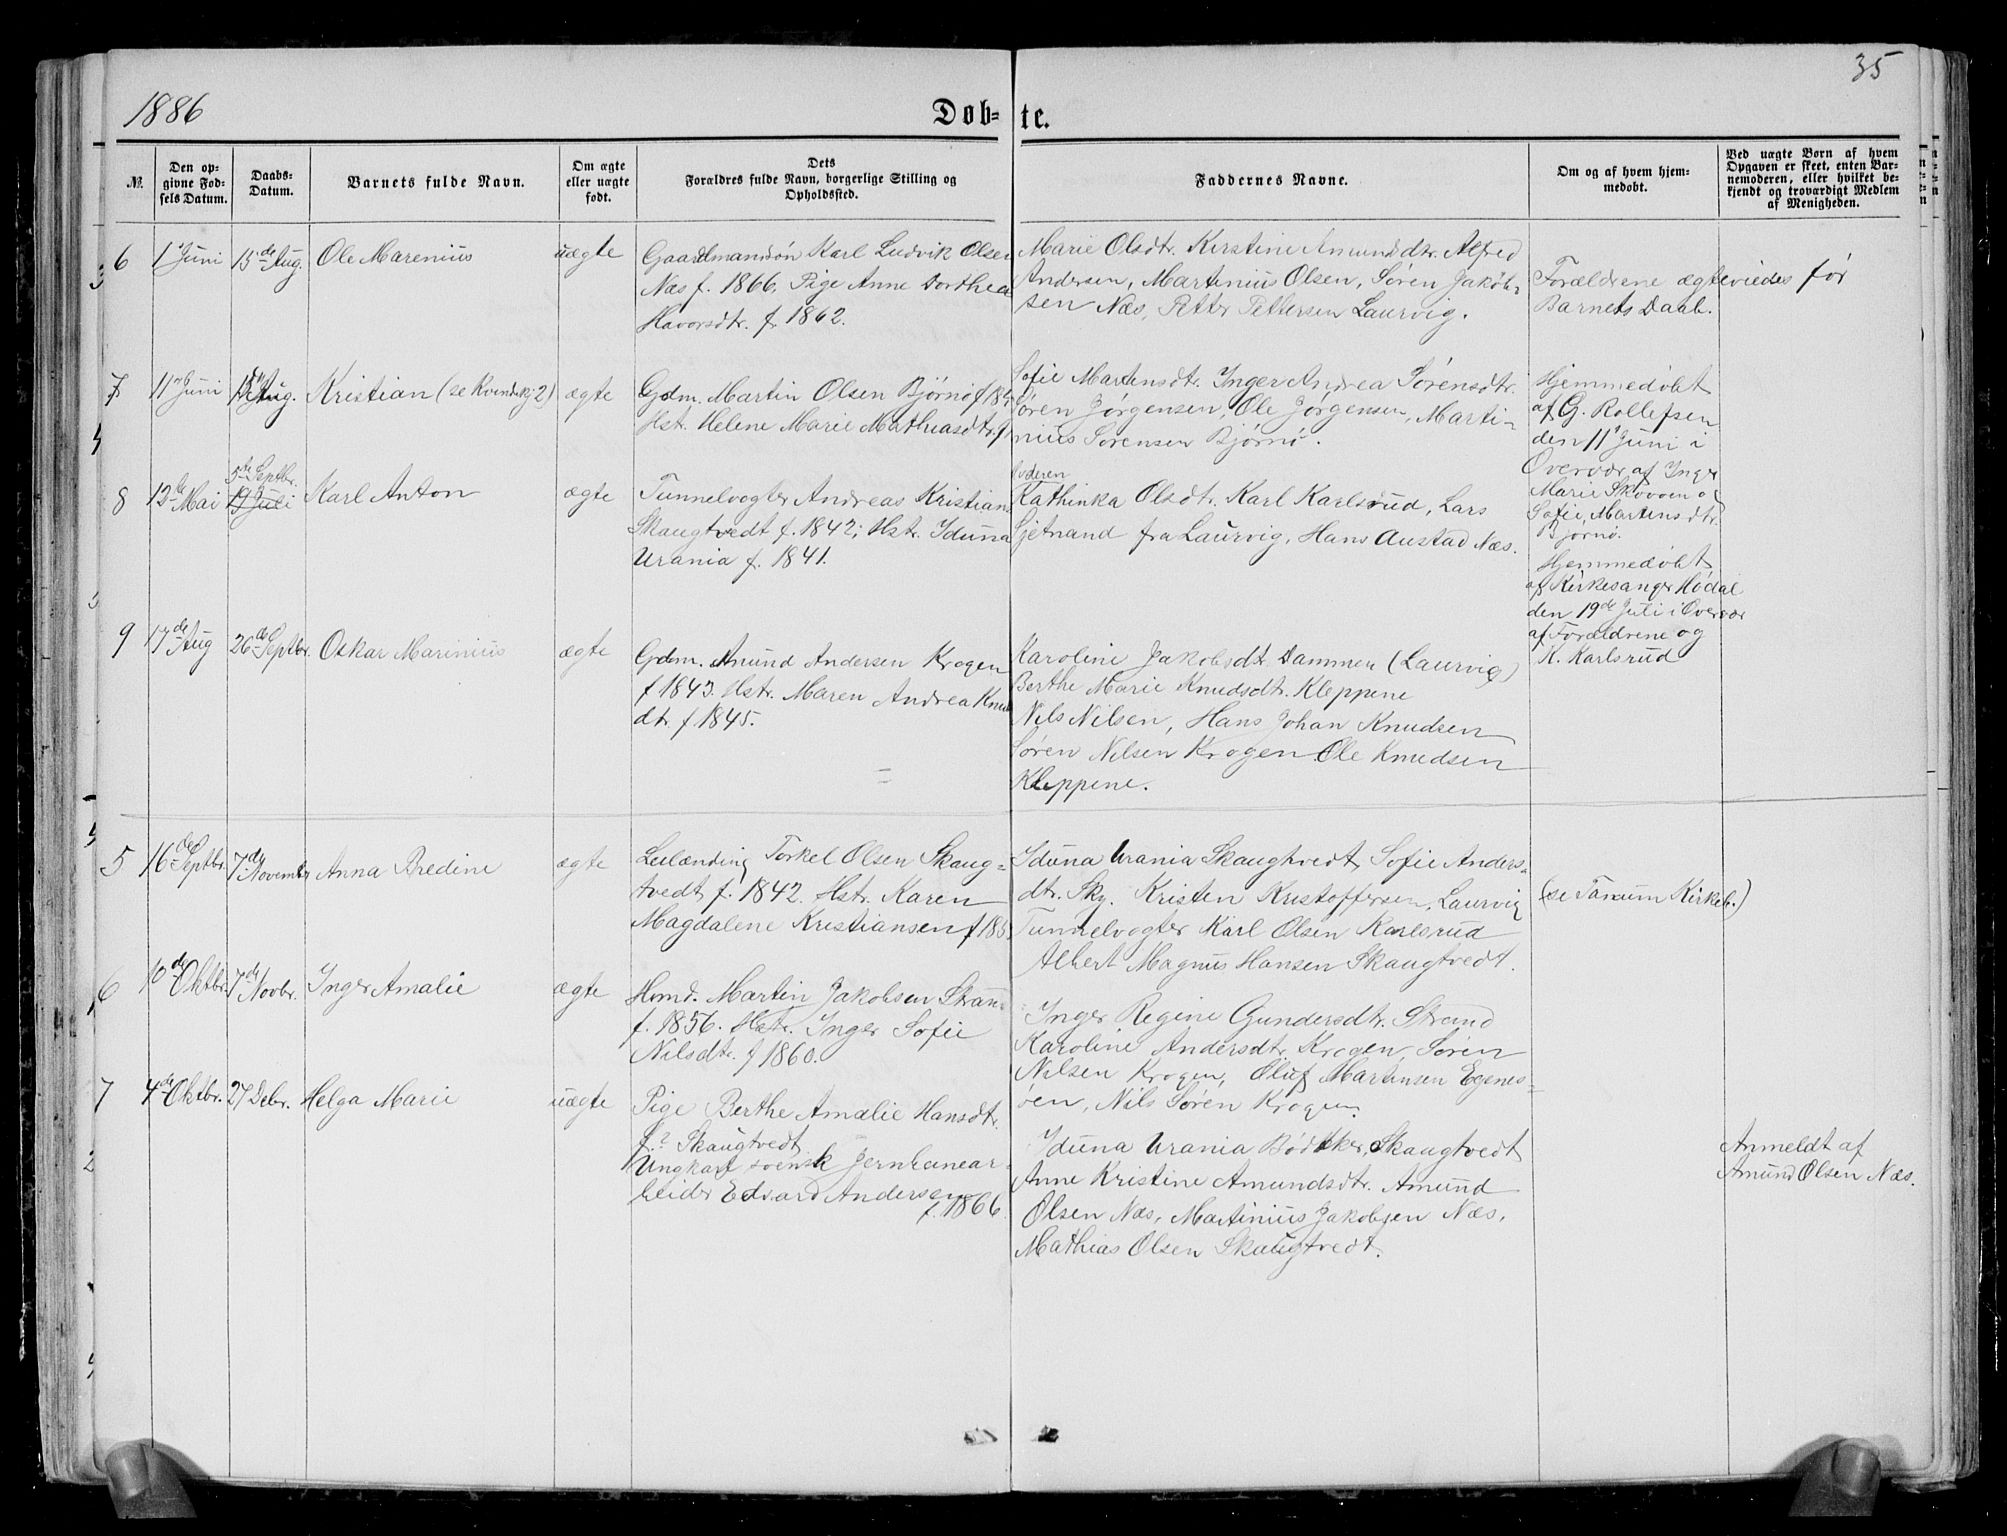 35
1886
Døb-
te.
№.
Den op-
givne Fød-
sels Datum.
Daabs-
Datum.
Barnets fulde Navn.
Om ægte
eller uægte
født.
Dets
Forældres fulde Navn, borgerlige Stilling og
Opholdssted.
Faddernes Navne.
Om og af hvem hjem-
medøbt.
Ved uægte Børn af hvem
Opgaven er skeet, enten Bar-
nemoderen, eller hvilket be-
kjendt og troværdigt Medlem
af Menigheden.
6
1ste Juni
15de Aug.
Ole Marenius
uægte
Gaardmandsøn Karl Ludvik Olsen
Næs f. 1866. Pige Anne Dorthea
Havorsdtr. f. 1862.
Marie Olsdtr. Kirstine Amundsdtr. Alfred
Andersen, Martinius Olsen, Søren Jakob-
sen Næs, Petter Pettersen Laurvig.
Forældrene ægteviedes før
Barnets Daab.
7
11te Juni
15 Aug.
Kristian (se Kvindekj. 2)
ægte
Gdm. Martin Olsen Bjørnø f. 184
Hst. Helene Marie Mathiasdtr. f.
Sofie Martensdtr. Inger Andrea Sørensdtr.
Søren Jørgensen, Ole Jørgensen, Marti-
nius Sørensen Bjørnø.
Hjemmedøbt
af G. Rollefsen
den 11te Juni i
Overvær af Inger
Marie Skovoen og
Sofie Martensdtr.
Bjørnø.
8
12te Mai
5te Septbr.
19 Juli
Karl Anton
ægte
Tunnelvogter Andreas Kristian
Skaugtvedt f. 1842; Hstr. Iduna
Urania f. 1841.
Moderen
Kathinka Olsdtr. Karl Karlsrud, Lars
Gjetrand fra Laurvig, Hans Austad Næs.
Hjemmedøbt
af Kirkesanger Hødal
den 19de Juli i Overvær
af Forældrene og
K. Karlsrud
9
17de Aug
26de Septbr.
Oskar Marinius
ægte
Gdm. Amund Andersen Krogen
f 1843. Hstr. Maren Andrea Knud
dtr. f 1845.
Karoline Jakobsdtr. Dammen (Laurvig)
Berthe Marie Knudsdtr. Kleppene
Nils Nilsen, Hans Johan Knudsen
Søren Nilsen Krogen. Ole Knudsen
Kleppene.
5
16de Septbr.
7de November
Anna Bredine
ægte
Leilænding Torkel Olsen Skaug-
tvedt f. 1842. Hstr. Karen
Magdalene Kristiansen f 185
Iduna Urania Skaugtvedt, Sofie Anders-
dtr. Sky. Kristen Kristoffersen, Laurvig
Tunnelvogter Karl Olsen Karlsrud
Albert Magnus Hansen Skaugtvedt.
(se Tanum Kirkeb.)
6
10de Oktbr.
7de Novbr.
Inger Amalie
ægte
Hmd. Martin Jakobsen Stran-
f. 1856. Hstr. Inger Sofie
Nilsdtr. f 1860.
Inger Regine Gundersdtr. Strand
Karoline Andersdtr. Krogen, Søren
Nilsen Krogen, Oluf Martinsen Egenes-
øen, Nils Søren Krogen.
7
4de Oktbr.
27 Debr.
Helga Marie
uægte
Pige Berthe Amalie Hansdtr.
f.? Skaugtvedt
Ungkarl svensk Jernbanear-
beider Edvard Andersen
f. 1866.
Iduna Urania Bødkker, Skaugtvedt
Anne Kristine Amundsdtr. Amund
Olsen Næs, Martinius Jakobsen Næs,
Mathias Olsen Skaugtvedt.
Anmeldt af
Amund Olsen Næs.